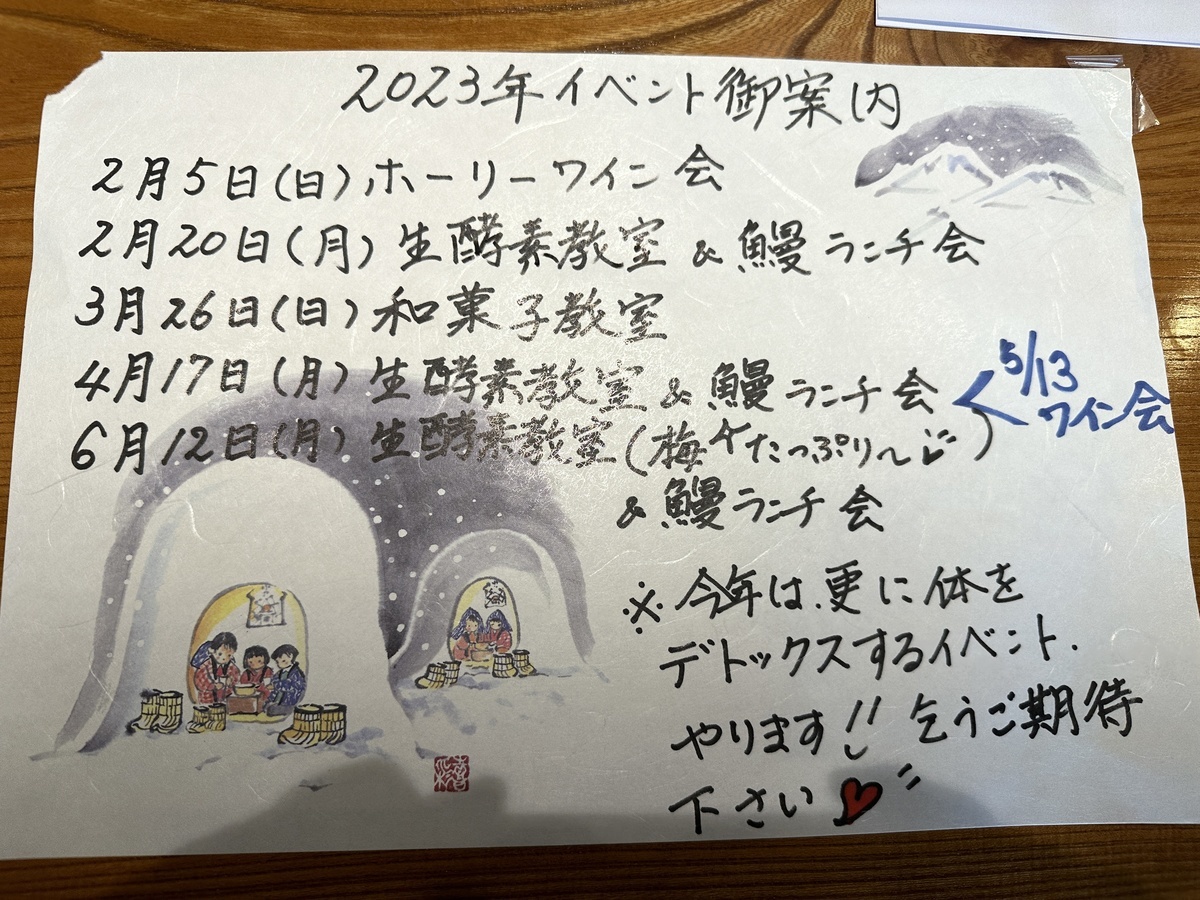 2023年イベント御案内
2月5日(日)ホーリーワイン会
2月20日(月)生酵素教室&鰻ランチ会
3月26日(日)和菓子教室
4月17日(月)生酵素教室&鰻ランチ会
5/13
ワイン会
6月12日(月)生酵素教室(梅ケたっぷり〜♡)
&鰻ランチ会
※今年は、更に体を
デトックスするイベント.
やります!! 乞うご期待
下さい♥